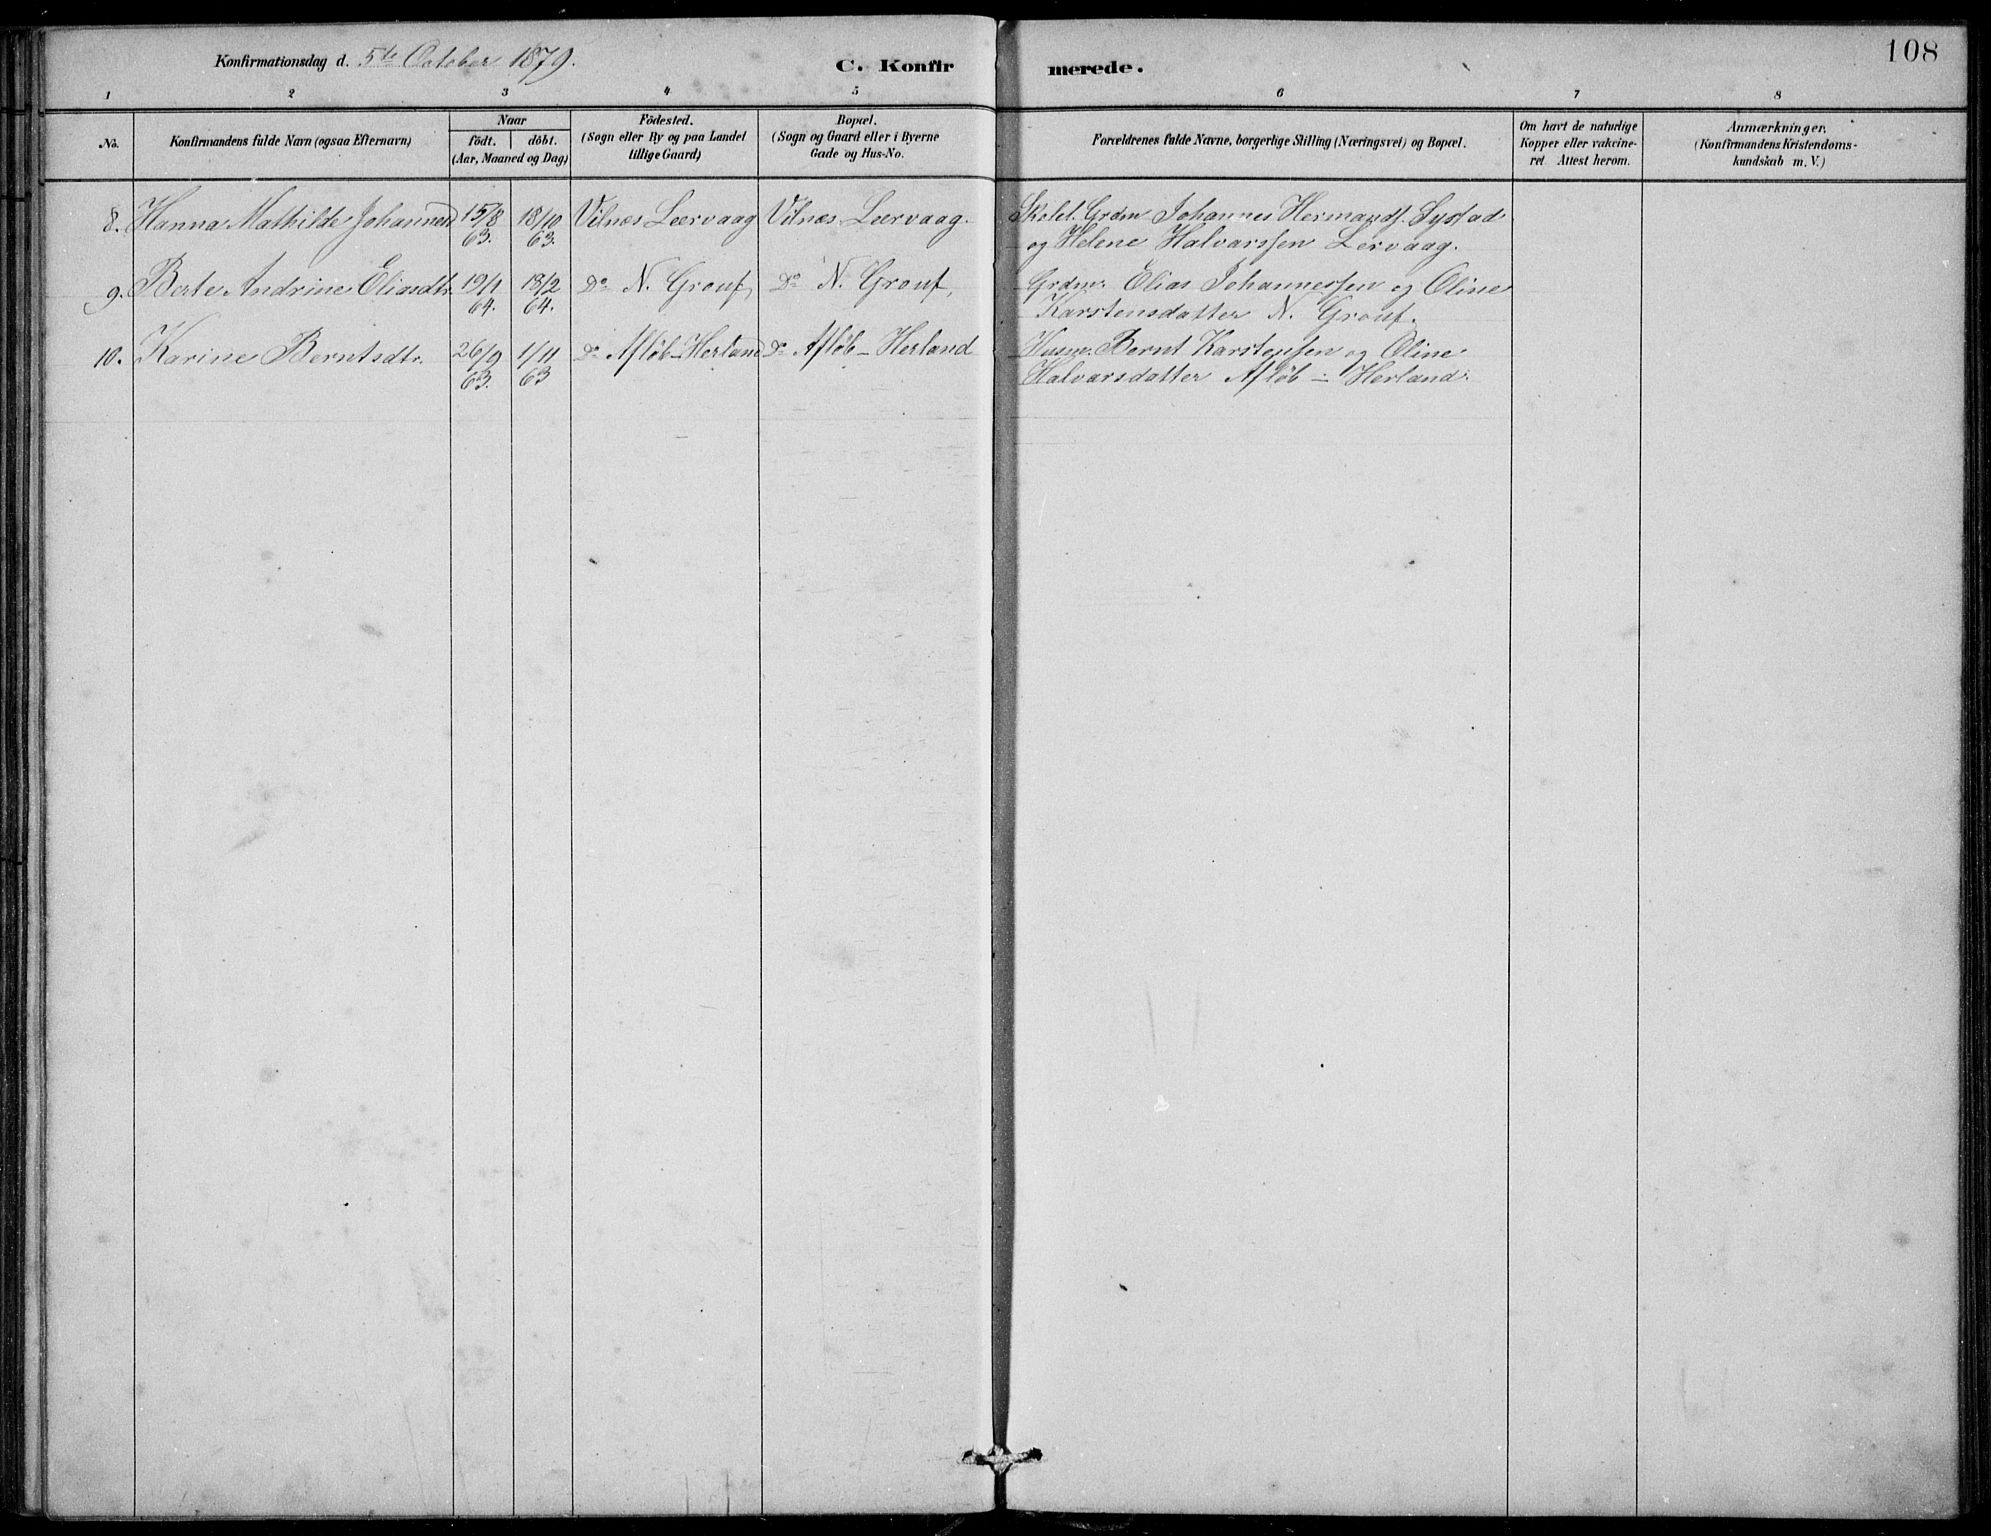 Konfirmationsdag d. 5te October 1879.
C. Konfir
merede.
108
1 2 3 4 5 6 7 8
No.
Konfirmandens fulde Navn (ogsaa Efternavn)
Naar
födt. döbt.
(Aar, Maaned og Dag)
Födested.
(Sogn eller By og paa Landet
tillige Gaard)
Bopæl.
(Sogn og Gaard eller i Byerne
Gade og Hus-No.
Forældrenes fulde Navne, borgerlige Stilling (Næringsvei) og Bopæl.
Om havt de naturlige
Kopper eller vakcine-
ret Attest herom.
Anmærkninger.
(Konfirmandens Kristendoms-
kundskab m. V.)
8. Hanna Mathilde Johannesd 15/8 63. 18/10 63. Vilnæs Leervaag Vilnæs Leervaag. Skolel. Grdm Johannes Hermands. Systad
og Helene Halvarssen Lervaag.
9. Berte Andrine Eliasdtr. 19/1 64. 18/2 64. Do N. Grouf, Do N. Grouf, Grdm. Elias Johannessen og Oline
Karstensdatter N. Grouf.
10. Karine Berntsdtr. 26/9 63. 1/11 63 Do Afløb-Herland Do Afløb-Herland Husm. Bernt Karstenssen og Oline
Halvarsdatter Afløb-Herland.